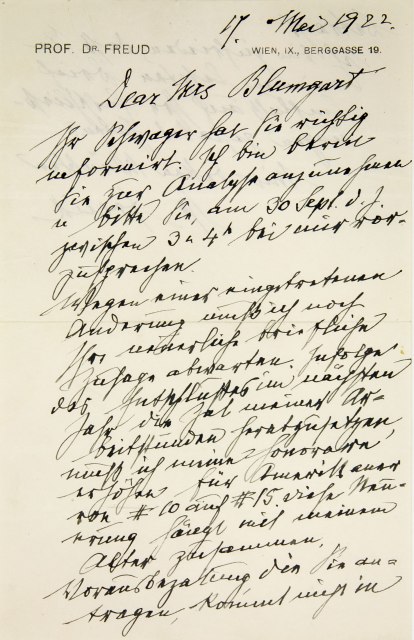 17. Mei 1922.
PROF. DR. FREUD
WIEN, IX., BERGGASSE 19.
Dear Mrs Blumgart
Ihr Schwager hat Sie richtig
informirt. Ich bin bereit
Sie zur Analyse anzunehmen
u bitte Sie, am 30 Sept. d. J.
zwischen 3 u 4h bei mir vor-
zusprechen.
Wegen einer eingetretenen
Änderung muß ich noch
Ihre neuerliche briefliche
Zusage abwarten. Infolge
des Entschlußes im nächsten
Jahr die Zal meiner Ar-
beitstunden herabzusetzen,
muß ich meine Honorare
erhöhen für Amerikaner
von $10 auf $15. Diese Neu-
erung hängt mit meinem
Alter zusammen.
Vorausbezalung, die Sie an-
tragen, kommt nicht in